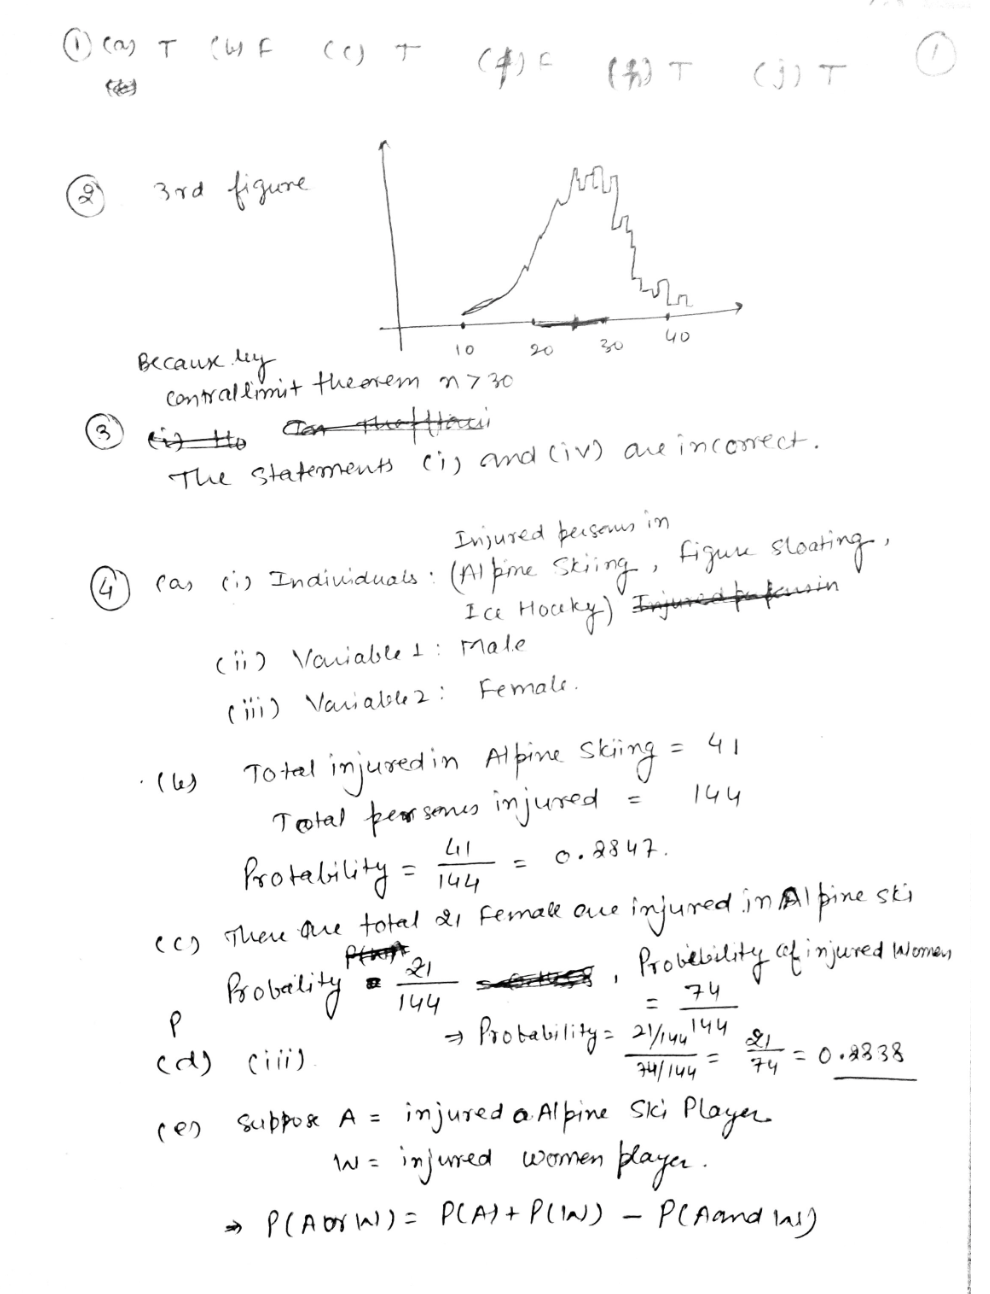 ① (a) T (b) F (c) T (f) F (h) T (j) T ①
② 3rd figure
10 20 30 40
Because by
central limit theorem n > 30
③
The statements (i) and (iv) are incorrect.
Injured persons in
④ (a) (i) Individuals : (Alpine Skiing, figure skating,
Ice Hockey)
(ii) Variable 1 : Male
(iii) Variable 2 : Female.
(b) Total injured in Alpine Skiing = 41
Total persons injured = 144
Probability = 41/144 = 0.2847.
(c) There are total 21 Female are injured in Alpine ski
Probality = 21/144 , Probability of injured Women
= 74/144
P ⇒ Probability = (21/144)/(74/144) = 21/74 = 0.2838
(d) (iii)
(e) Suppose A = injured a Alpine Ski Player
W = injured women player.
⇒ P(A or W) = P(A) + P(W) - P(A and W)